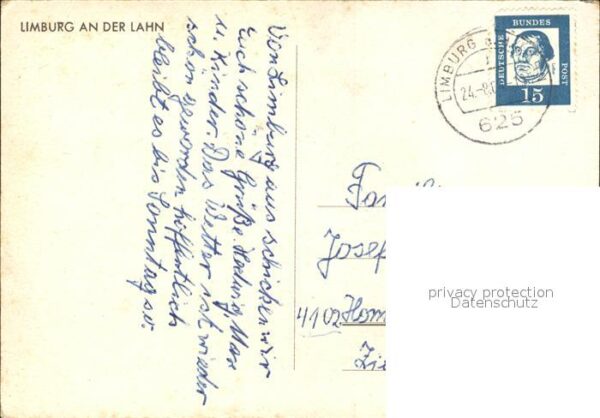 LIMBURG AN DER LAHN
Von Limburg aus schicken wir
Euch schöne Grüße. Hedwig, Max
u. Kinder. Das Wetter ist wieder
schön geworden hoffentlich
bleibt es bis Sonntag so.
LIMBURG
24.-8.
625
DEUTSCHE
BUNDES
POST
15
Fam
Josef
4102 Hom
Zie
privacy protection
Datenschutz